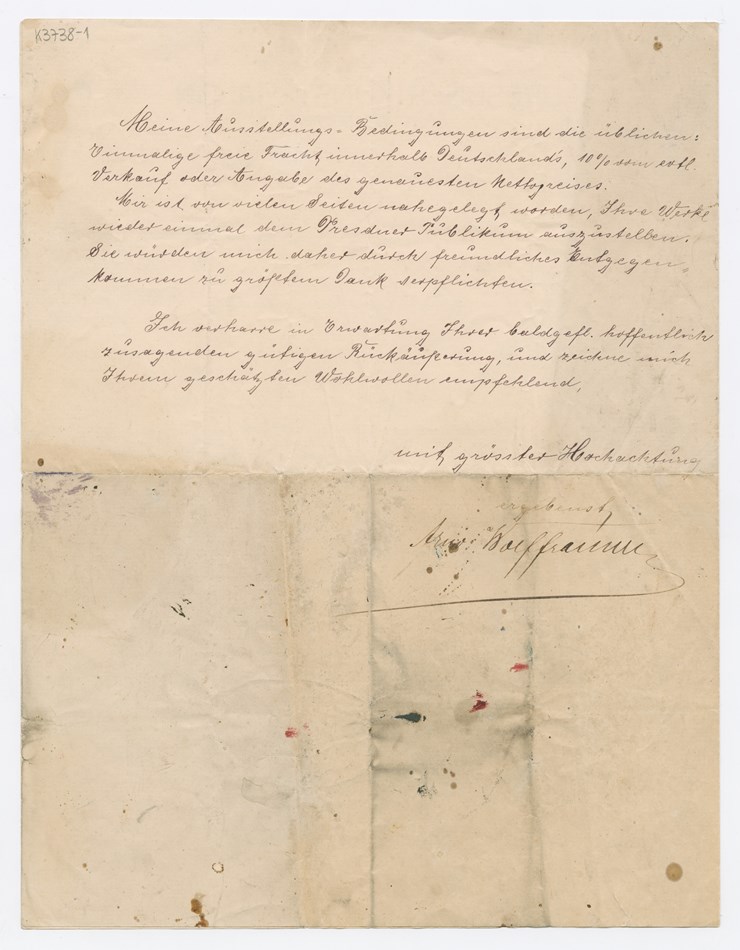 K3738-1
Meine Ausstellungs-Bedingungen sind die üblichen:
Einmalige freie Fracht innerhalb Deutschlands, 10% vom evtl.
Verkauf oder Angabe des genauesten Nettopreises.
Mir ist von vielen Seiten nahegelegt worden, Ihre Werke
wieder einmal dem Dresdner Publikum auszustellen.
Sie würden mich daher durch freundliches Entgegen
kommen zu größtem Dank verpflichten.
Ich verharre in Erwartung Ihrer baldgefl. hoffentlich
zusagenden gütigen Rückäußerung, und zeichne mich
Ihrem geschätzten Wohlwollen empfehlend,
mit grösster Hochachtung
ergebenst
Wolfframm